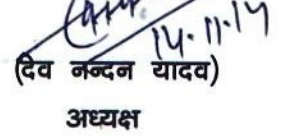 14.11.14
(देव नन्दन यादव)
अध्यक्ष